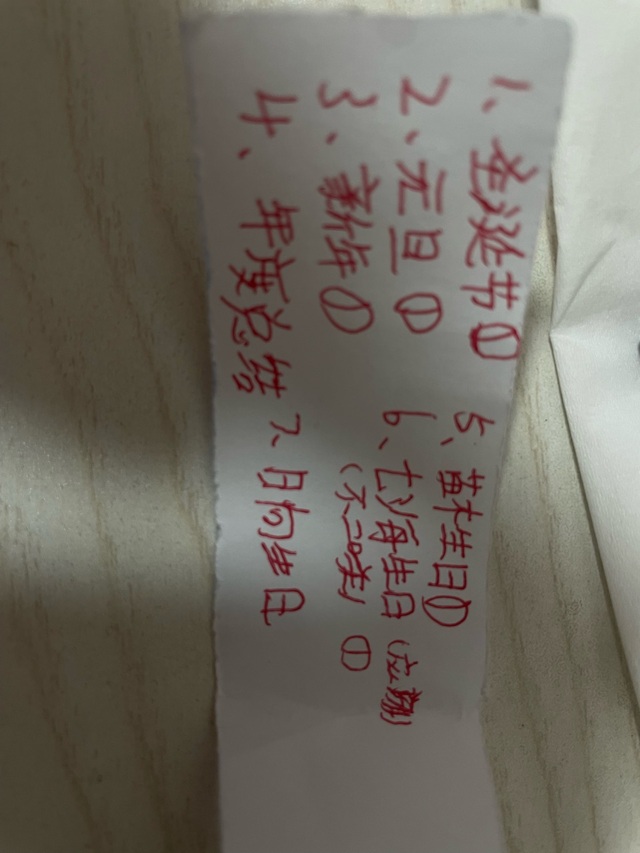 1、圣诞节①
2、元旦①
3、新年①
4、年度总结
5、苗木生日①
6、七海生日(应)
(不二咲)①
7、日向生日